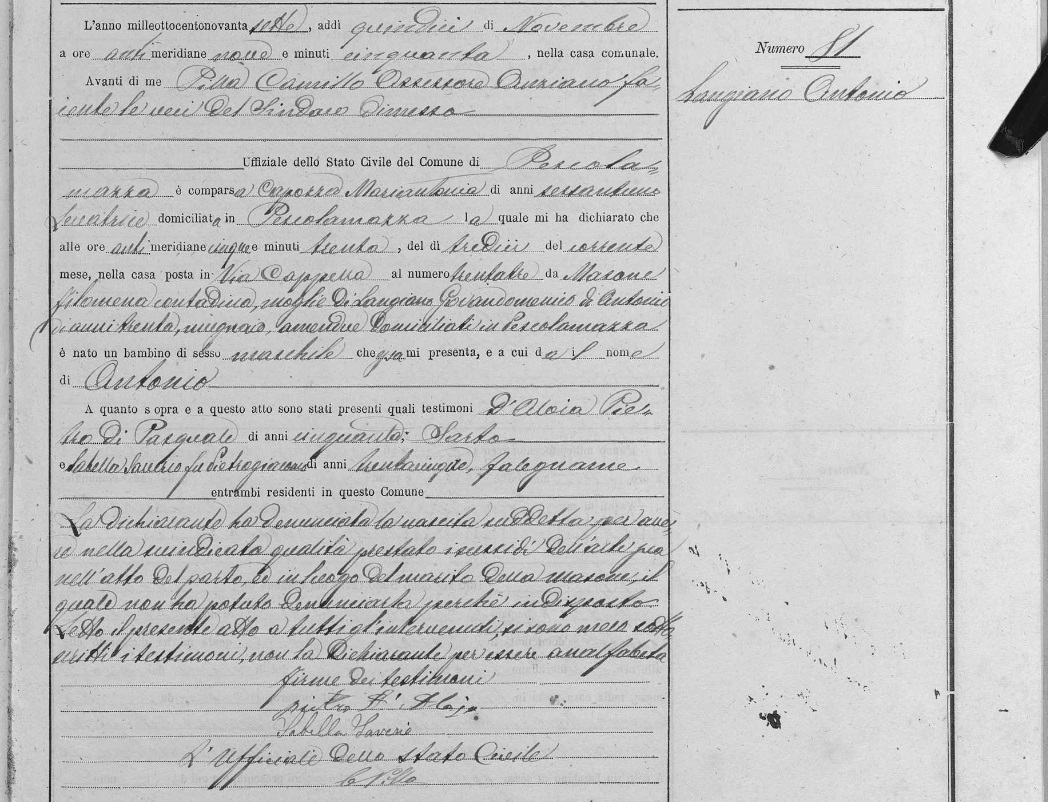 L'anno milleottocentonovantasette, addì quindici di Novembre
a ore anti meridiane nove e minuti cinquanta, nella casa comunale.
Avanti di me Pilla Camillo Assessore Anziano fa-
ciente le veci del Sindaco dimesso
Uffiziale dello Stato Civile del Comune di Pescola-
mazza è comparsa Capozza Mariantonia di anni
Levatrice domiciliata in Pescolamazza, la quale mi ha dichiarato che
alle ore anti meridiane cinque e minuti trenta, del dì tredici del corrente
mese, nella casa posta in Via Cappella al numero trentatre da Masone
Filomena contadina, moglie di Langiano Giovandomenico di Antonio
di anni trenta, mugnaio, amendue domiciliati in Pescolamazza
è nato un bambino di sesso maschile che qua mi presenta, e a cui da il nome
di Antonio
A quanto sopra e a questo atto sono stati presenti quali testimoni D'Aloia Pie-
tro di Pasquale di anni cinquanta, Sarto
e Sabella Saverio fu di anni trentacinque, falegname
entrambi residenti in questo Comune
La dichiarante ha denunciata la nascita suddetta per ave-
re nella suindicata qualità prestato i sussidi dell'arte pro
nell'atto del parto, ed in luogo del marito della Masone, il
quale non ha potuto denunciarla perchè indisposto
Letto il presente atto a tutti gl'intervenuti, si sono meco sotto
scritti i testimoni, non la dichiarante per essere analfabeta
Firme dei testimoni
pietro D'Aloja
Sabella Saverio
L'Ufficiale dello stato Civile
C Pilla
Numero 81
Langiano Antonio